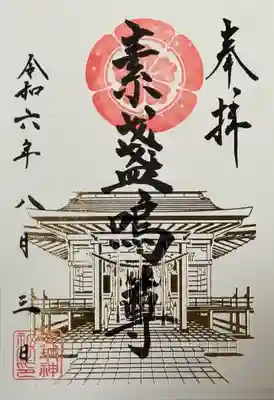 奉拝
素盞嗚尊
令和六年八月三日